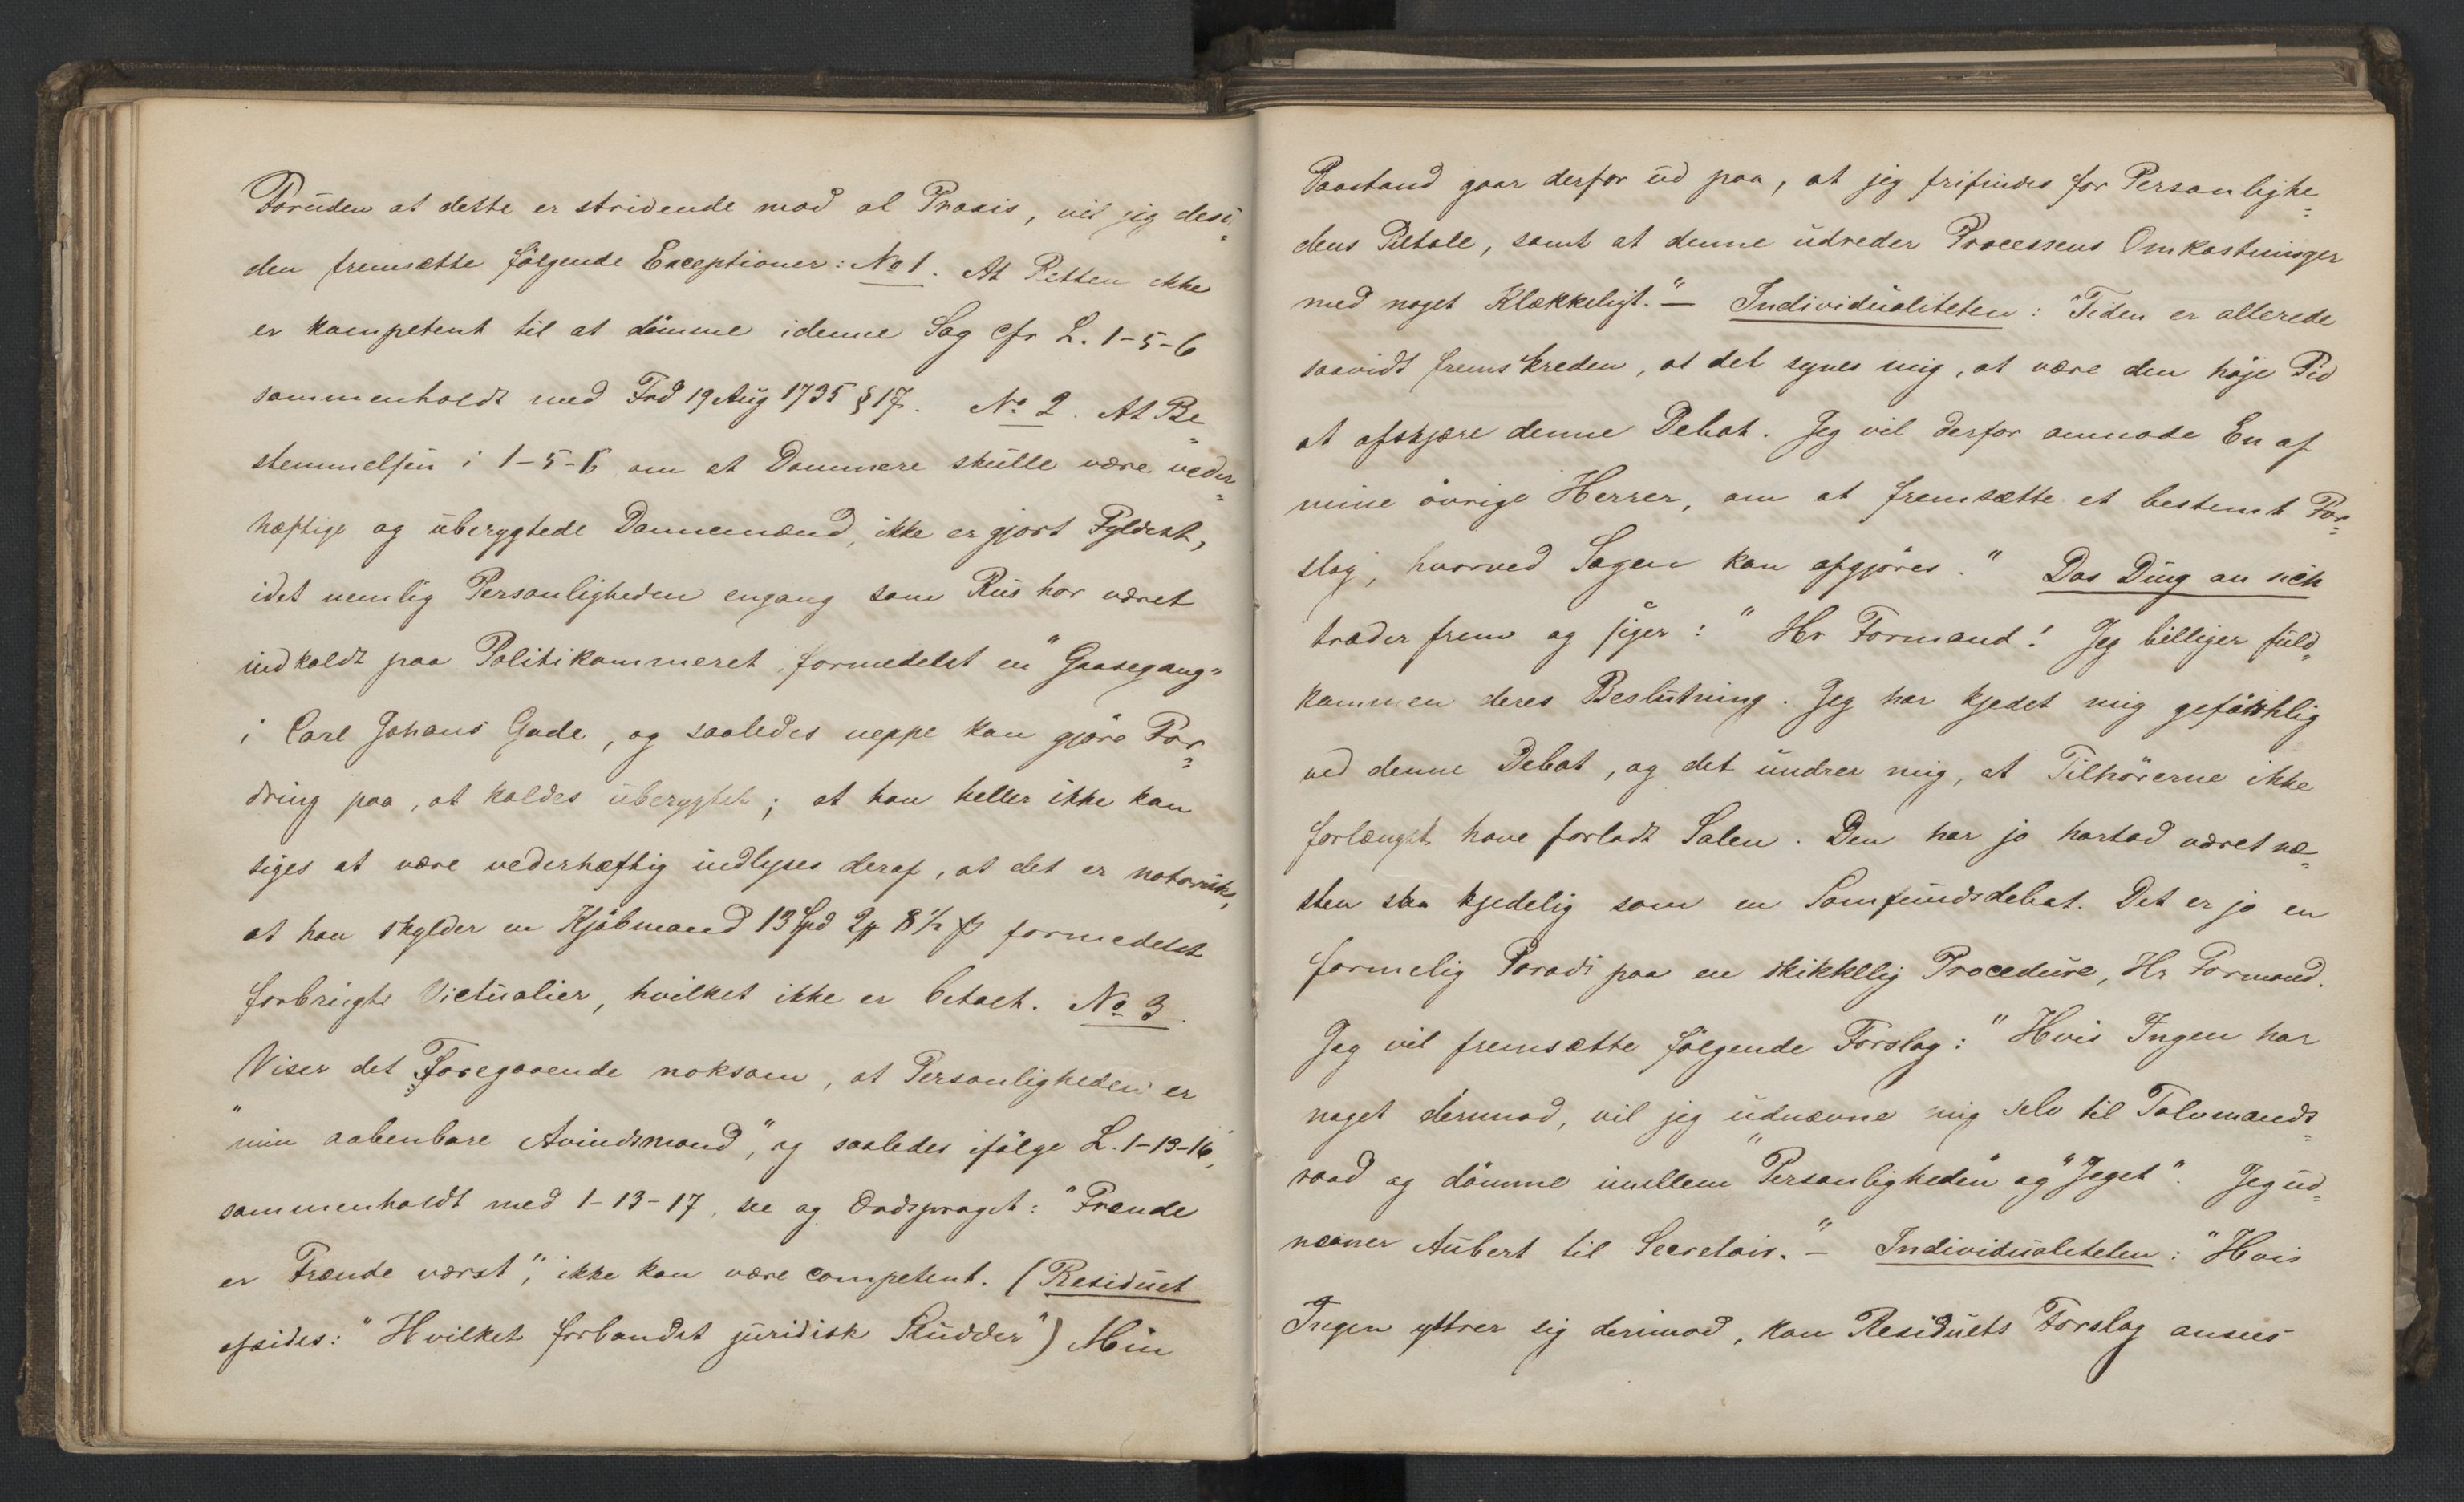 Foruden at dette er stridende mod al Praxis, vil jig desu-
den fremsætte følgende Exceptioner: No 1. At Retten ikke
er kompetent til at dömme idenne Sag cfr L. 1-5-6
sammenholdt med Frd 19 Aug 1735 § 17. No 2. At Be=
stemmelsen i 1-5-6 om at Dommere skulle være veder=
hæftige og uberygtede Dannemænd, ikke er gjort Fyldest,
idet nemlig Personligheden engang som Rus har været
indkaldt paa Politikammeret formedelst en "Gaasegang"
i Carl Johans Gade, og saaledes neppe kan gjöre For=
dring paa, at kaldes uberygtet; at han heller ikke kan
siges at være vederhæftig indlyses deraf, at det er notorisk,
at han skylder en Kjöbmand 13 Spd 2 ort 8 1/2 ß formedelst
forbrugte Victualier, hvilket ikke er betalt. No 3.
Viser det Foregaaende noksom, at Personligheden er
"min aabenbare Avindsmand", og saaledes ifölge L. 1-13-16,
sammenholdt med 1-13-17, see og Ordsproget: "Frænde
er Frænde værst", ikke kan være competent. (Residuet
afsides: "Hvilket forbandet juridisk Sludder") Min
Paastand gaar derfor ud paa, at jeg frifindes for Personlighe=
dens Tiltale, samt at denne udreder Processens Omkostninger
med noget Klækkeligt." — Individualiteten: "Tiden er allerede
saavidt fremskreden, at det synes mig, at være den höje Tid
at afskjære denne Debat. Jeg vil derfor anmode En af
mine övrige Herrer, om at fremsætte et bestemt For=
slag, hvorved Sagen kan afgjöres." Das Ding an sich
træder frem og siger: "Hr Formand! Jeg billiger fuld=
kommen deres Beslutning. Jeg har kjedet mig gefährlig
ved denne Debat, og det undrer mig, at Tilhörerne ikke
forlængst have forladt Salen. Den har jo hartad været næ=
sten saa kjedelig som en Samfundsdebat. Det er jo en
formelig Parodi paa en skikkelig Procedure, Hr Formand.
Jeg vil fremsætte fölgende Forslag: "Hvis Ingen har
noget derimod, vil jeg udnævne mig selv til Tolvmands=
raad og dömme imellem "Personligheden" og "Jeget". Jeg ud=
nævner Aubert til Secretair." — Individualiteten: "Hvis
Ingen yttrer sig derimod, kan Residuets Forslag ansees